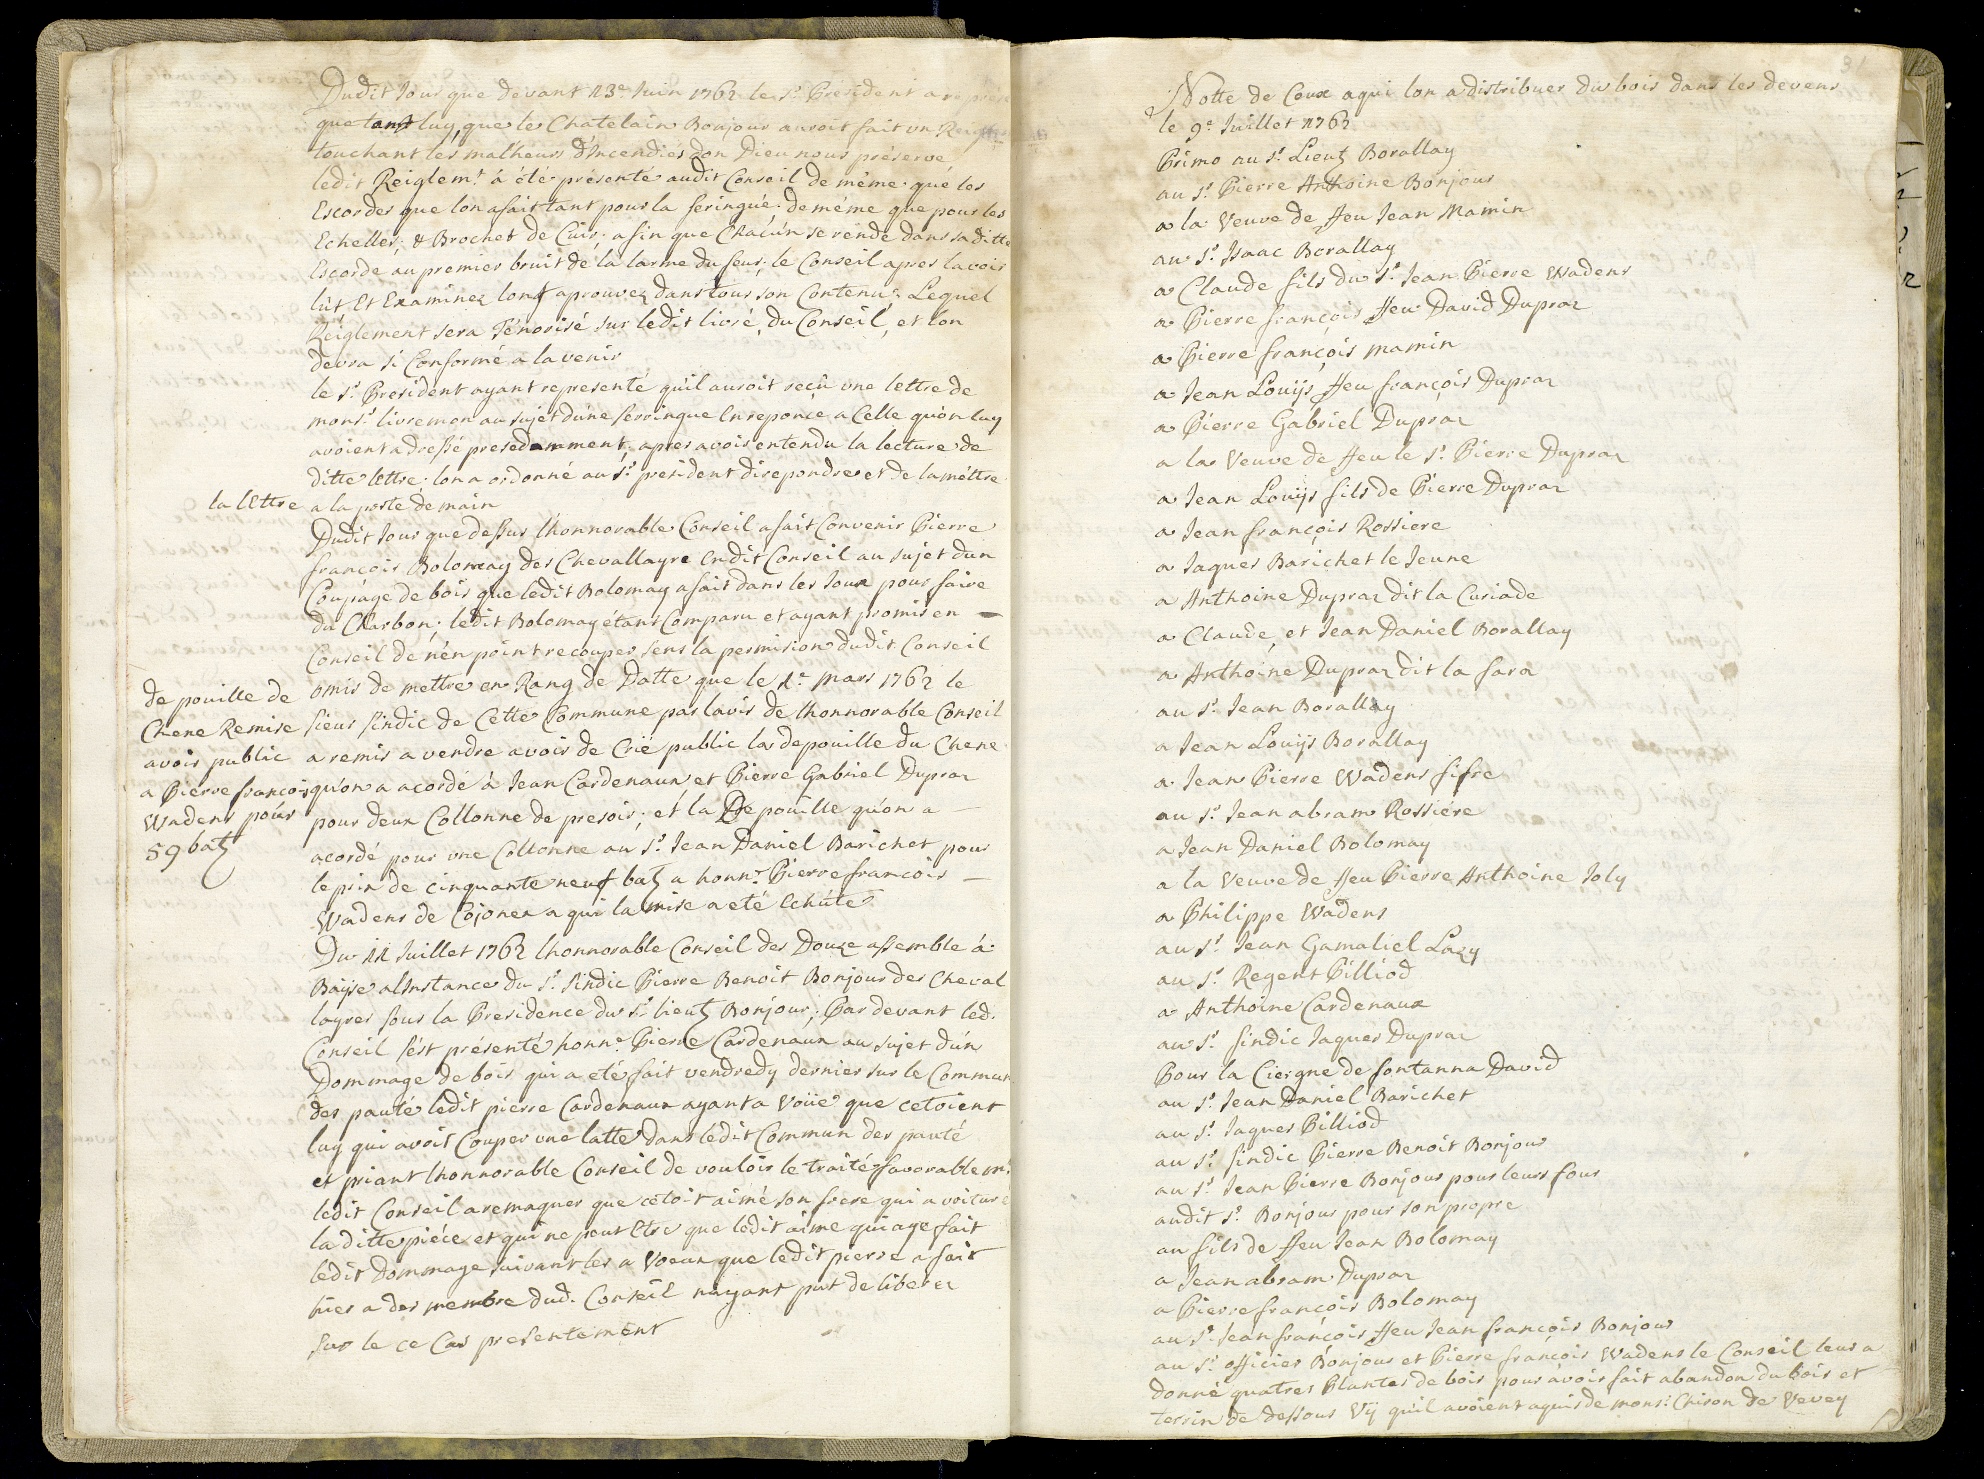 Dudit Jour que devant 13e Juin 1762 le Sr President a repres
que tant luy, que le Chatelain Bonjour auroit fait un Reiglemt
touchant les malheurs d'Incendies don Dieu nous préserve
ledit Reiglemt à été présenté audit Conseil de même que les
Escordes que lon a fait tant pour la seringue. de même que pour les
Echelles, & Brochet de Cuir; afin que Chacun se rende dans sa ditte
Escorde au premier bruit de la larme du feux; le Conseil apres lavoir
lût, Et Examinez lont aprouvez dans tous son Contenu. Lequel
Reiglement sera Ténorisé sur ledit livre, du Conseil, et lon
devra si Conformé a lavenir
le Sr President ayant representé quil auroit reçû une lettre de
monsr livremon au sujet dune serringue En reponce a Celle quon luy
avoient adressé presedamment, apres avoir entendu la lecture de
ditte lettre; lon a ordonné au Sr president di repondre et de la méttre
la lettre
a la poste demain
Dudit Jour que dessus lhonnorable Conseil a fait Convenir Pierre
françois Bolomay des Chevallayre Endit Conseil au sujet dun
Coupage de bois que ledit Bolomay a fait dans les Joux pour faire
du Charbon; ledit Bolomay étant Comparu et ayant promis en
Conseil de nén point recouper sens la permision dudit Conseil
omis de mettre en Rang de Datte que le 1e mars 1762 le
sieur sindic de Cette Commune par lavis de lhonnorable Conseil
a remis a vendre a voix de Crié public la depouille du Chene
quon a acordé à Jean Cardenaux, et Pierre Gabriel Dupraz
pour deux Collonne de presoir; et la Depouille quon a
acordé pour une Collonne au Sr Jean Daniel Barichet pour
le prix de cinquante neuf batz a honnr Pierre françois
Wadens de Cojonex a qui la mise a été Echûte
de pouille de
Chene Remise
avoix public
a Pierre françois
Wadens pour
59 batz
Du 11 Juillet 1762 lhonnorable Conseil des Douze assemble à
Bayse a lInstance du Sr sindic Pierre Benoit Bonjour des Cheval
layres sous la Presidence du Sr lieutz Bonjour; Par devant led.
Conseil sést présenté honnr Pierre Cardenaux au sujet dún
Dommage de bois qui a eté fait vendredy dernier sur le Commun
des pauté ledit pierre Cardenaux ayant a Voüe que cetoient
luy qui avoit Couper une latte dans ledit Commun des pauté
et priant lhonnorable Conseil de vouloir le traité favorablemt
ledit Conseil a remaquer que cetoit aimé son frere qui a voituré
la ditte piéce et qui ne peut Etre que ledit aime qui aye fait
ledit Dommage suivant les a Voeux que ledit pierre a fait
hier a des membre dud. Conseil nayant put de liberer
sur le ce Cas presentement
31
Notte de Ceux a qui lon a distribuer du bois dans les devens
le 9e Juillet 1762
Primo au Sr Lieutz Borallay
au Sr Pierre Anthoine Bonjour
a la Veuve de feu Jean Mamin
au Sr Isaac Borallay
a Claude fils du Sr Jean Pierre Wadens
a Pierre françois feu David Dupraz
a Pierre françois mamin
a Jean Louijs feu françois Dupraz
a Pierre Gabriel Dupraz
a la Veuve de feu le Sr Pierre Dupraz
a Jean Louijs fils de Pierre Dupraz
a Jean françois Rossiere
a Jaques Barichet le Jeune
a Anthoine Dupraz dit la Curiade
a Claude, et Jean Daniel Borallay
a Anthoine Dupraz dit la fara
au Sr Jean Borallay
a Jean Louijs Borallay
a Jean Pierre Wadens fifre
au Sr Jean abram Rossiére
a Jean Daniel Bolomay
a la Veuve de feu Pierre Anthoine Joly
a Philippe Wadens
au Sr Jean Gamaliel Lazy
au Sr Regent Pilliod
a Anthoine Cardenaux
au Sr sindic Jaques Dupraz
Pour la Ciergne de fontanna David
au Sr Jean Daniel Barichet
au Sr Jaques Pilliod
au Sr sindic Pierre Benoit Bonjour
au Sr Jean Pierre Bonjour pour leurs four
audit Sr Bonjour pour son propre
au fils de feu Jean Bolomay
a Jean abram Dupraz
a Pierre françois Bolomay
au Sr Jean françois feu Jean françois Bonjour
au Sr officier Bonjour et Pierre françois Wadens le Conseil leur a
donné quatres Plantes de bois pour avoir fait abandon du bois et
terrin de dessous Vÿ quil avoient aquis de monsr Chison de Vevey